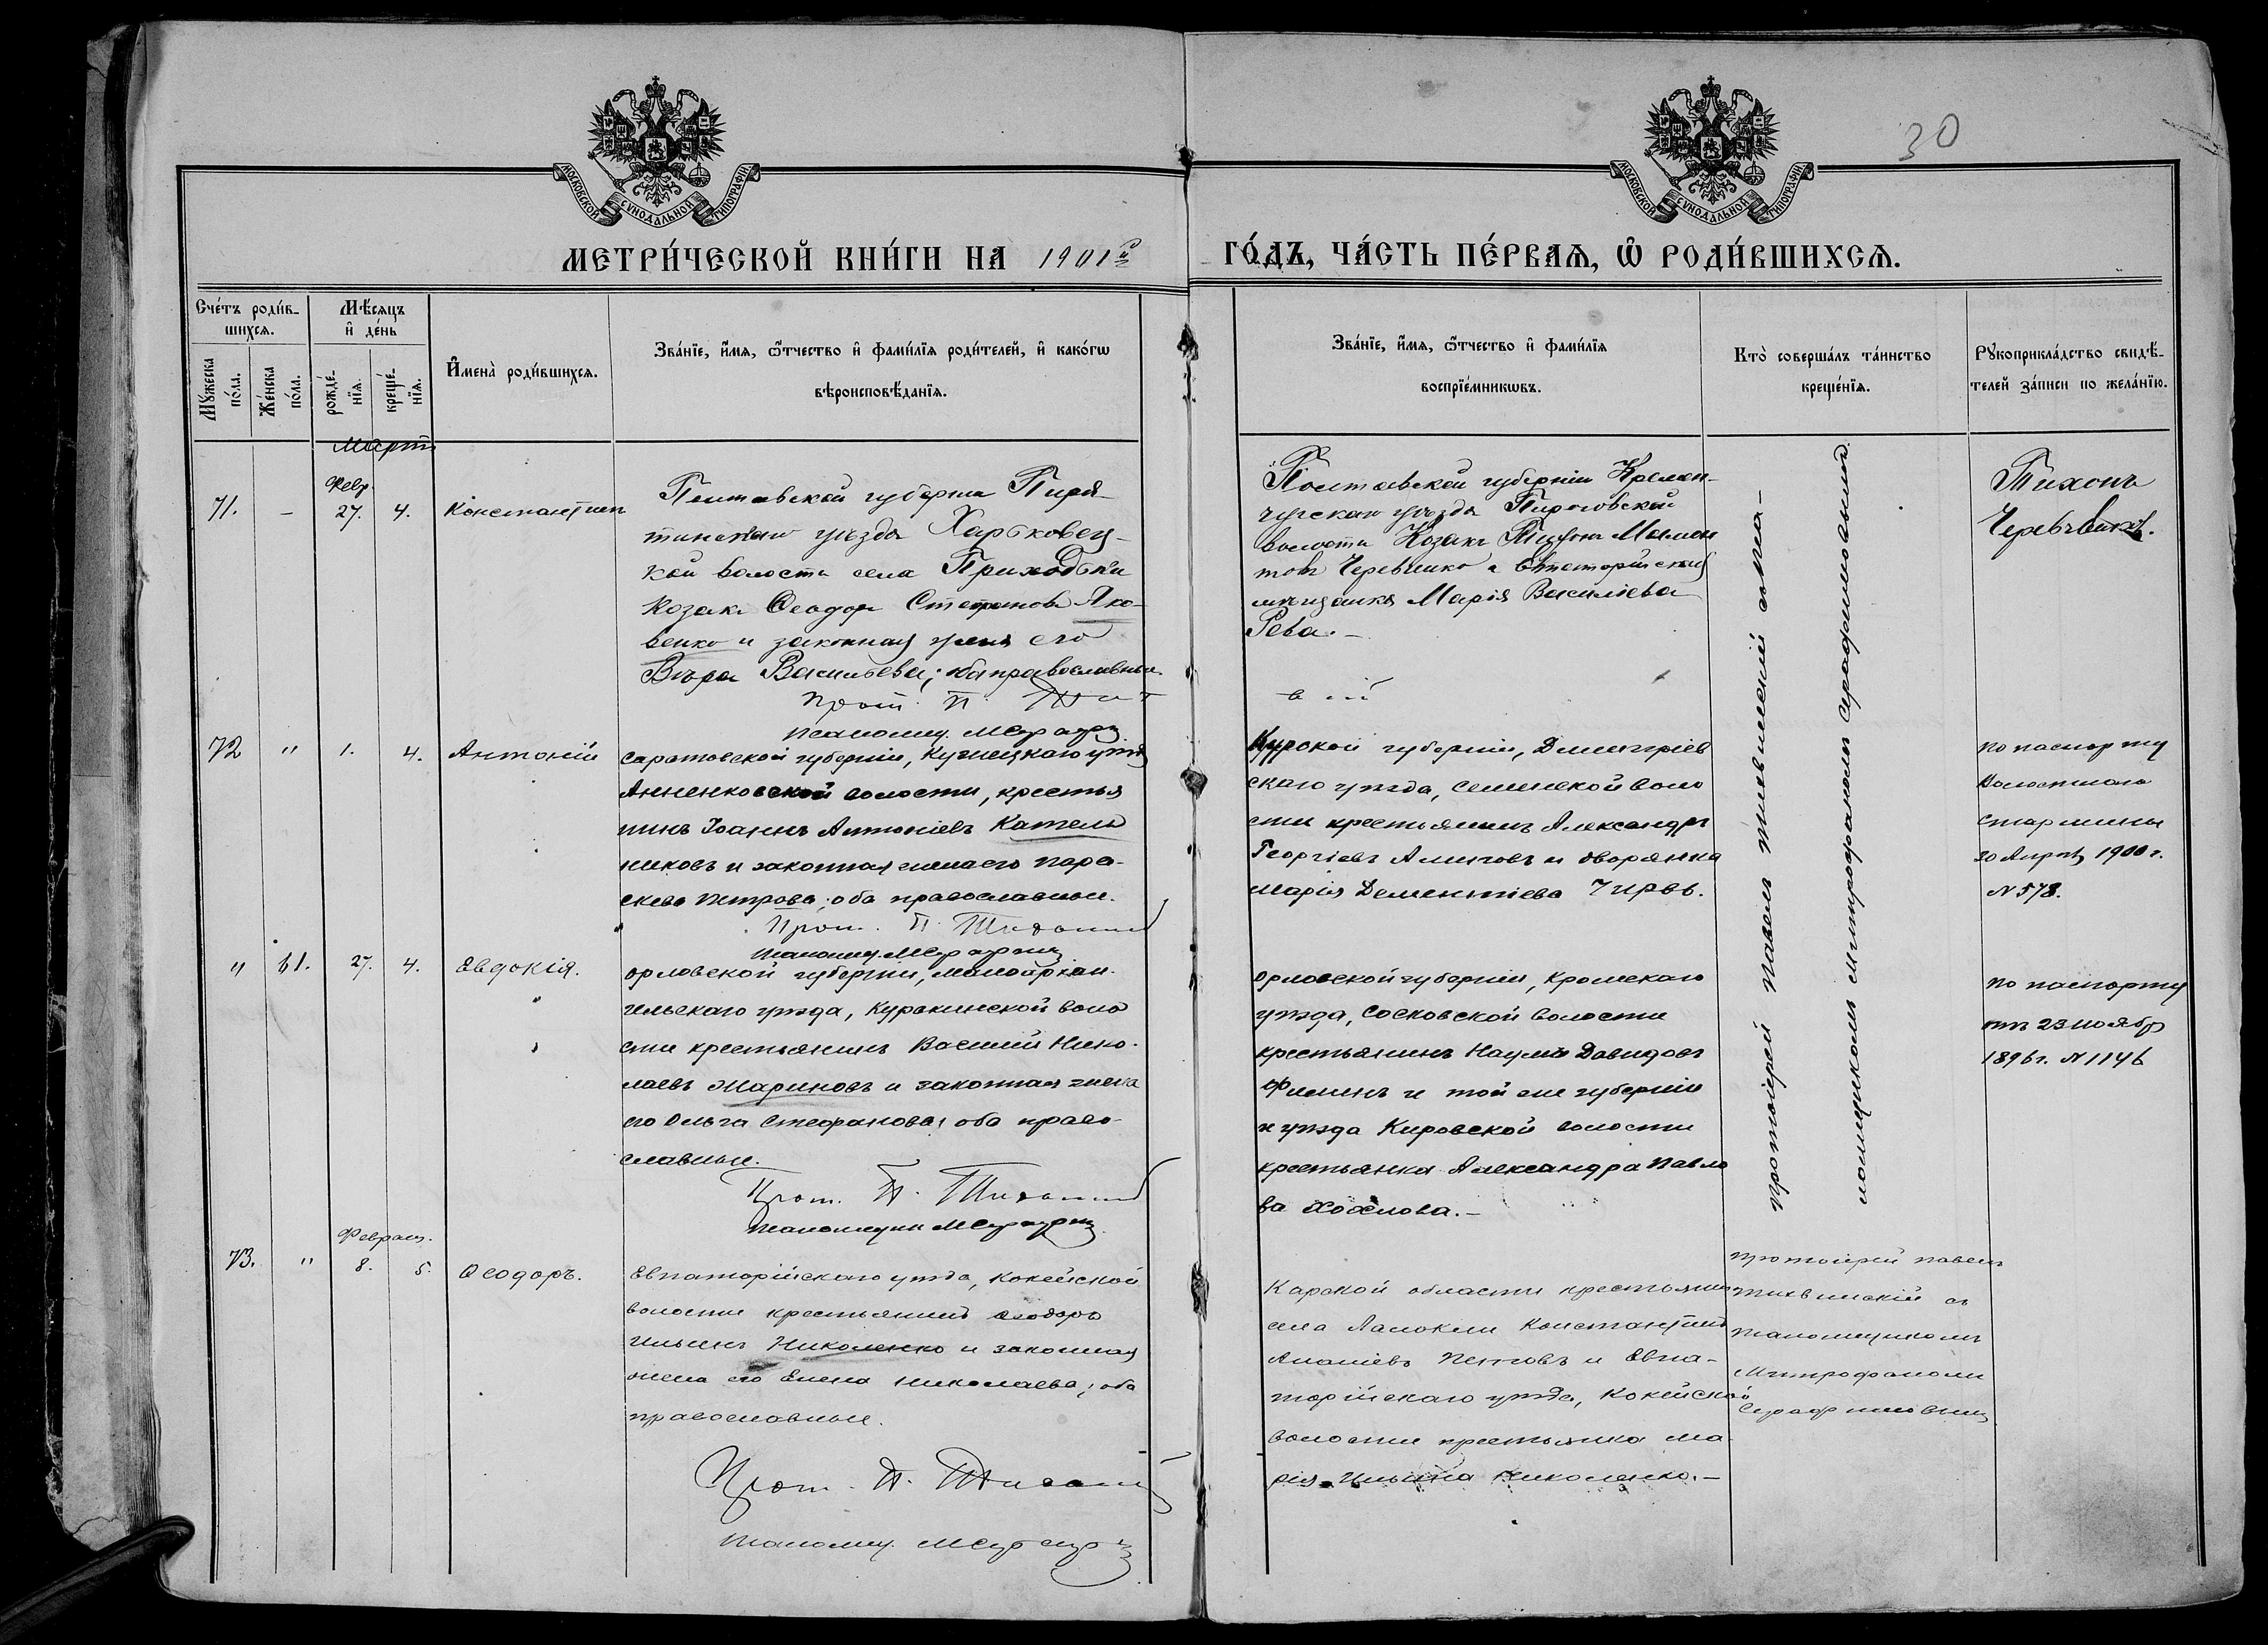 30
МОСКОВСКОЙ СѴНОДАЛЬНОЙ ТИПОГРАФІИ
МОСКОВСКОЙ СѴНОДАЛЬНОЙ ТИПОГРАФІИ
МЕТРИ́ЧЕСКОЙ КНИ́ГИ НА 1901й
ГО́ДЪ, ЧА́СТЬ ПЕ́РВАѦ, Ѽ РОДИ́ВШИХСѦ.
Сче́тъ роди́в-
шихсѧ.
Мꙋ́жеска по́ла.
Же́нска по́ла.
Мѣ́сѧцъ
и҆ де́нь
рожде́-нїѧ.
креще́-нїѧ.
И҆мена̀ роди́вшихсѧ.
Зва́нїе, и҆́мѧ, ѻ҆́тчество и҆ фами́лїѧ роди́телей, и҆ како́гѡ
вѣроисповѣ́данїѧ.
Зва́нїе, и҆́мѧ, ѻ҆́тчество и҆ фами́лїѧ
воспрїе́мникѡвъ.
Кто̀ соверша́лъ та́инство
креще́нїѧ.
Рꙋкоприкла́дство свидѣ́-
телей за́писи по жела́нїю.
Мартъ
71. – Февр. 27. 4. Константинъ
Полтавской губерніи Пиря-
тинскаго уѣзда Харьковец-
кой волости села Приходьки
козакъ Ѳеодоръ Стефановъ Яко-
венко и законная жена его
Вѣра Васильева; оба православные.
Прот. П.
Псаломщ. МСерафи
Полтавской губерніи Кремен-
чугскаго уѣзда Пироговской
волости Козакъ Тихонъ Мамон
товъ Черевченко и Евпаторійская
мѣщанка Марія Василіева
Рева.–
Тихонъ
72 " 1. 4. Антоній
Саратовской губерніи, Кузнецкаго уѣзд
Анненковской волости, крестья
нинъ Іоаннъ Антоніевъ Катель
никовъ и законная жена его Пара-
скева Петрова; оба православные.
Прот. П. Тихвинскій
Псаломщ. МСерафи
Курской губерніи, Дмитріев
скаго уѣзда, Семенской воло
сти крестьянинъ Александръ
Георгіевъ Алитовъ и дворянка
Марія Дементіева Чирвъ.
по паспорту
Волостнаго
старшины
20 Апрѣл. 1900 г.
N 578.
" 61. 27. 4. Евдокія.
Орловской губерніи, Малоархан-
гельскаго уѣзда, Куракинской воло
сти крестьянинъ Василій Нико-
лаевъ Мариновъ и законная жена
его Ольга Стефанова; оба право-
славные.
Прот. П. Тихвинскій
Псаломщикъ МСерафи
Орловской губерніи, Кромскаго
уѣзда, Сосковской волости
крестьянинъ Наумъ Давидовъ
Филинъ и той же губерніи
и уѣзда Кировской волости
крестьянка Александра Павло
ва Хохлова.–
Протоіерей Павелъ Тихвинскій съ пса-
ломщикомъ Митрофаномъ Серафимовымъ.
по паспорту
отъ 23 Ноябр
1896 г. N 1146
Феврал.
73. " 8. 5. Ѳеодоръ.
Евпаторійскаго уѣзда, Кокейской
волости крестьянинъ Ѳеодоръ
Ильинъ Николенко и законная
жена его Елена Николаева; оба
православные.
Прот. П. Тихвинскій
Псаломщ. МСерафи
Карской области крестьянин
села Константинъ
Ананіевъ Пентовъ и Евпа-
торійскаго уѣзда, Кокейской
волости крестьянка Ма-
рія Ильина Николенко.–
Протоіерей Павелъ
Тихвинскій съ
псаломщикомъ
Митрофаномъ
Серафимовым